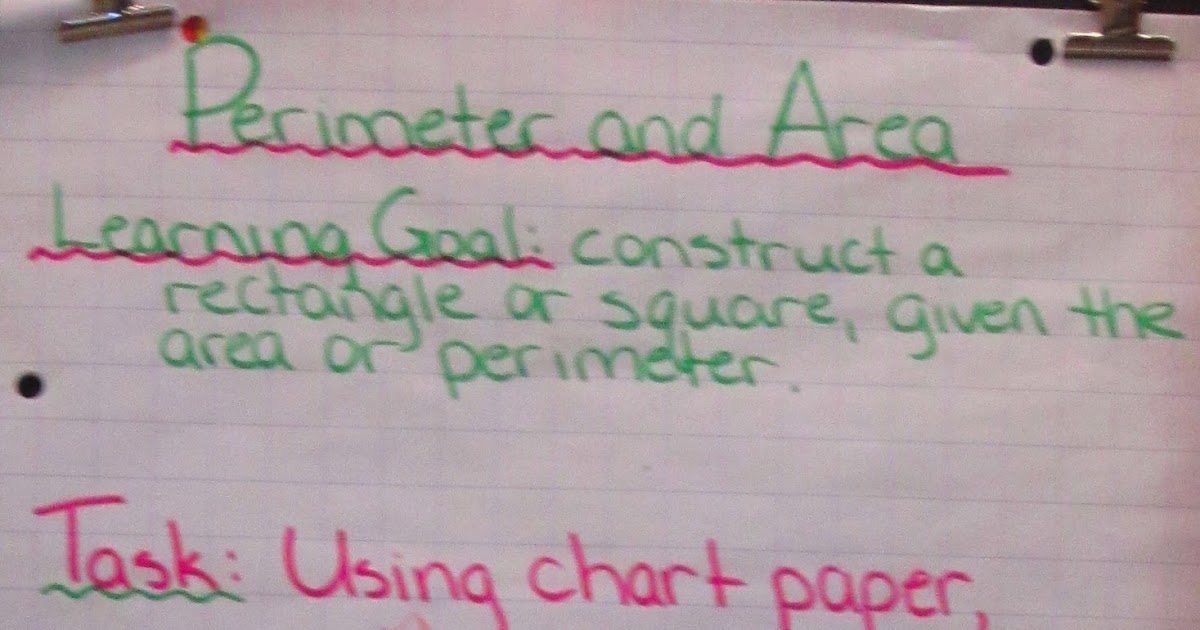 Perimeter and Area
Learning Goal: construct a
rectangle or square, given the
area or perimeter.
Task: Using chart paper,